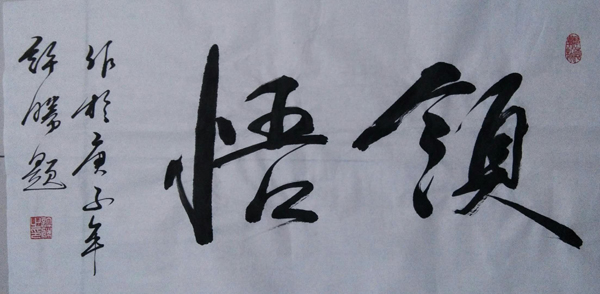 領悟
作於庚子年
許勝題